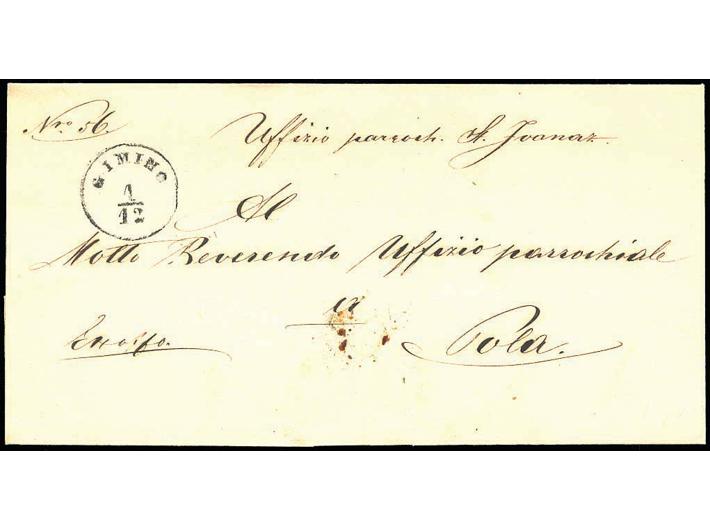 Nro. 56.
Uffizio parroch. St. Ivanaz.
GIMINO
1/12
Al
Molto Reverendo Uffizio parrochiale
a
Pola.